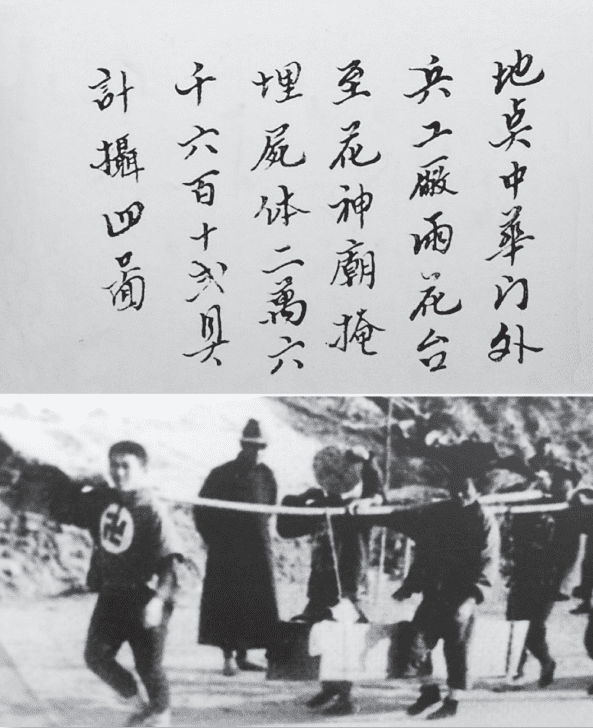 地奌中華门外
兵工廠雨花台
至花神廟掩
埋屍体二萬六
千六百十弍具
計攝四